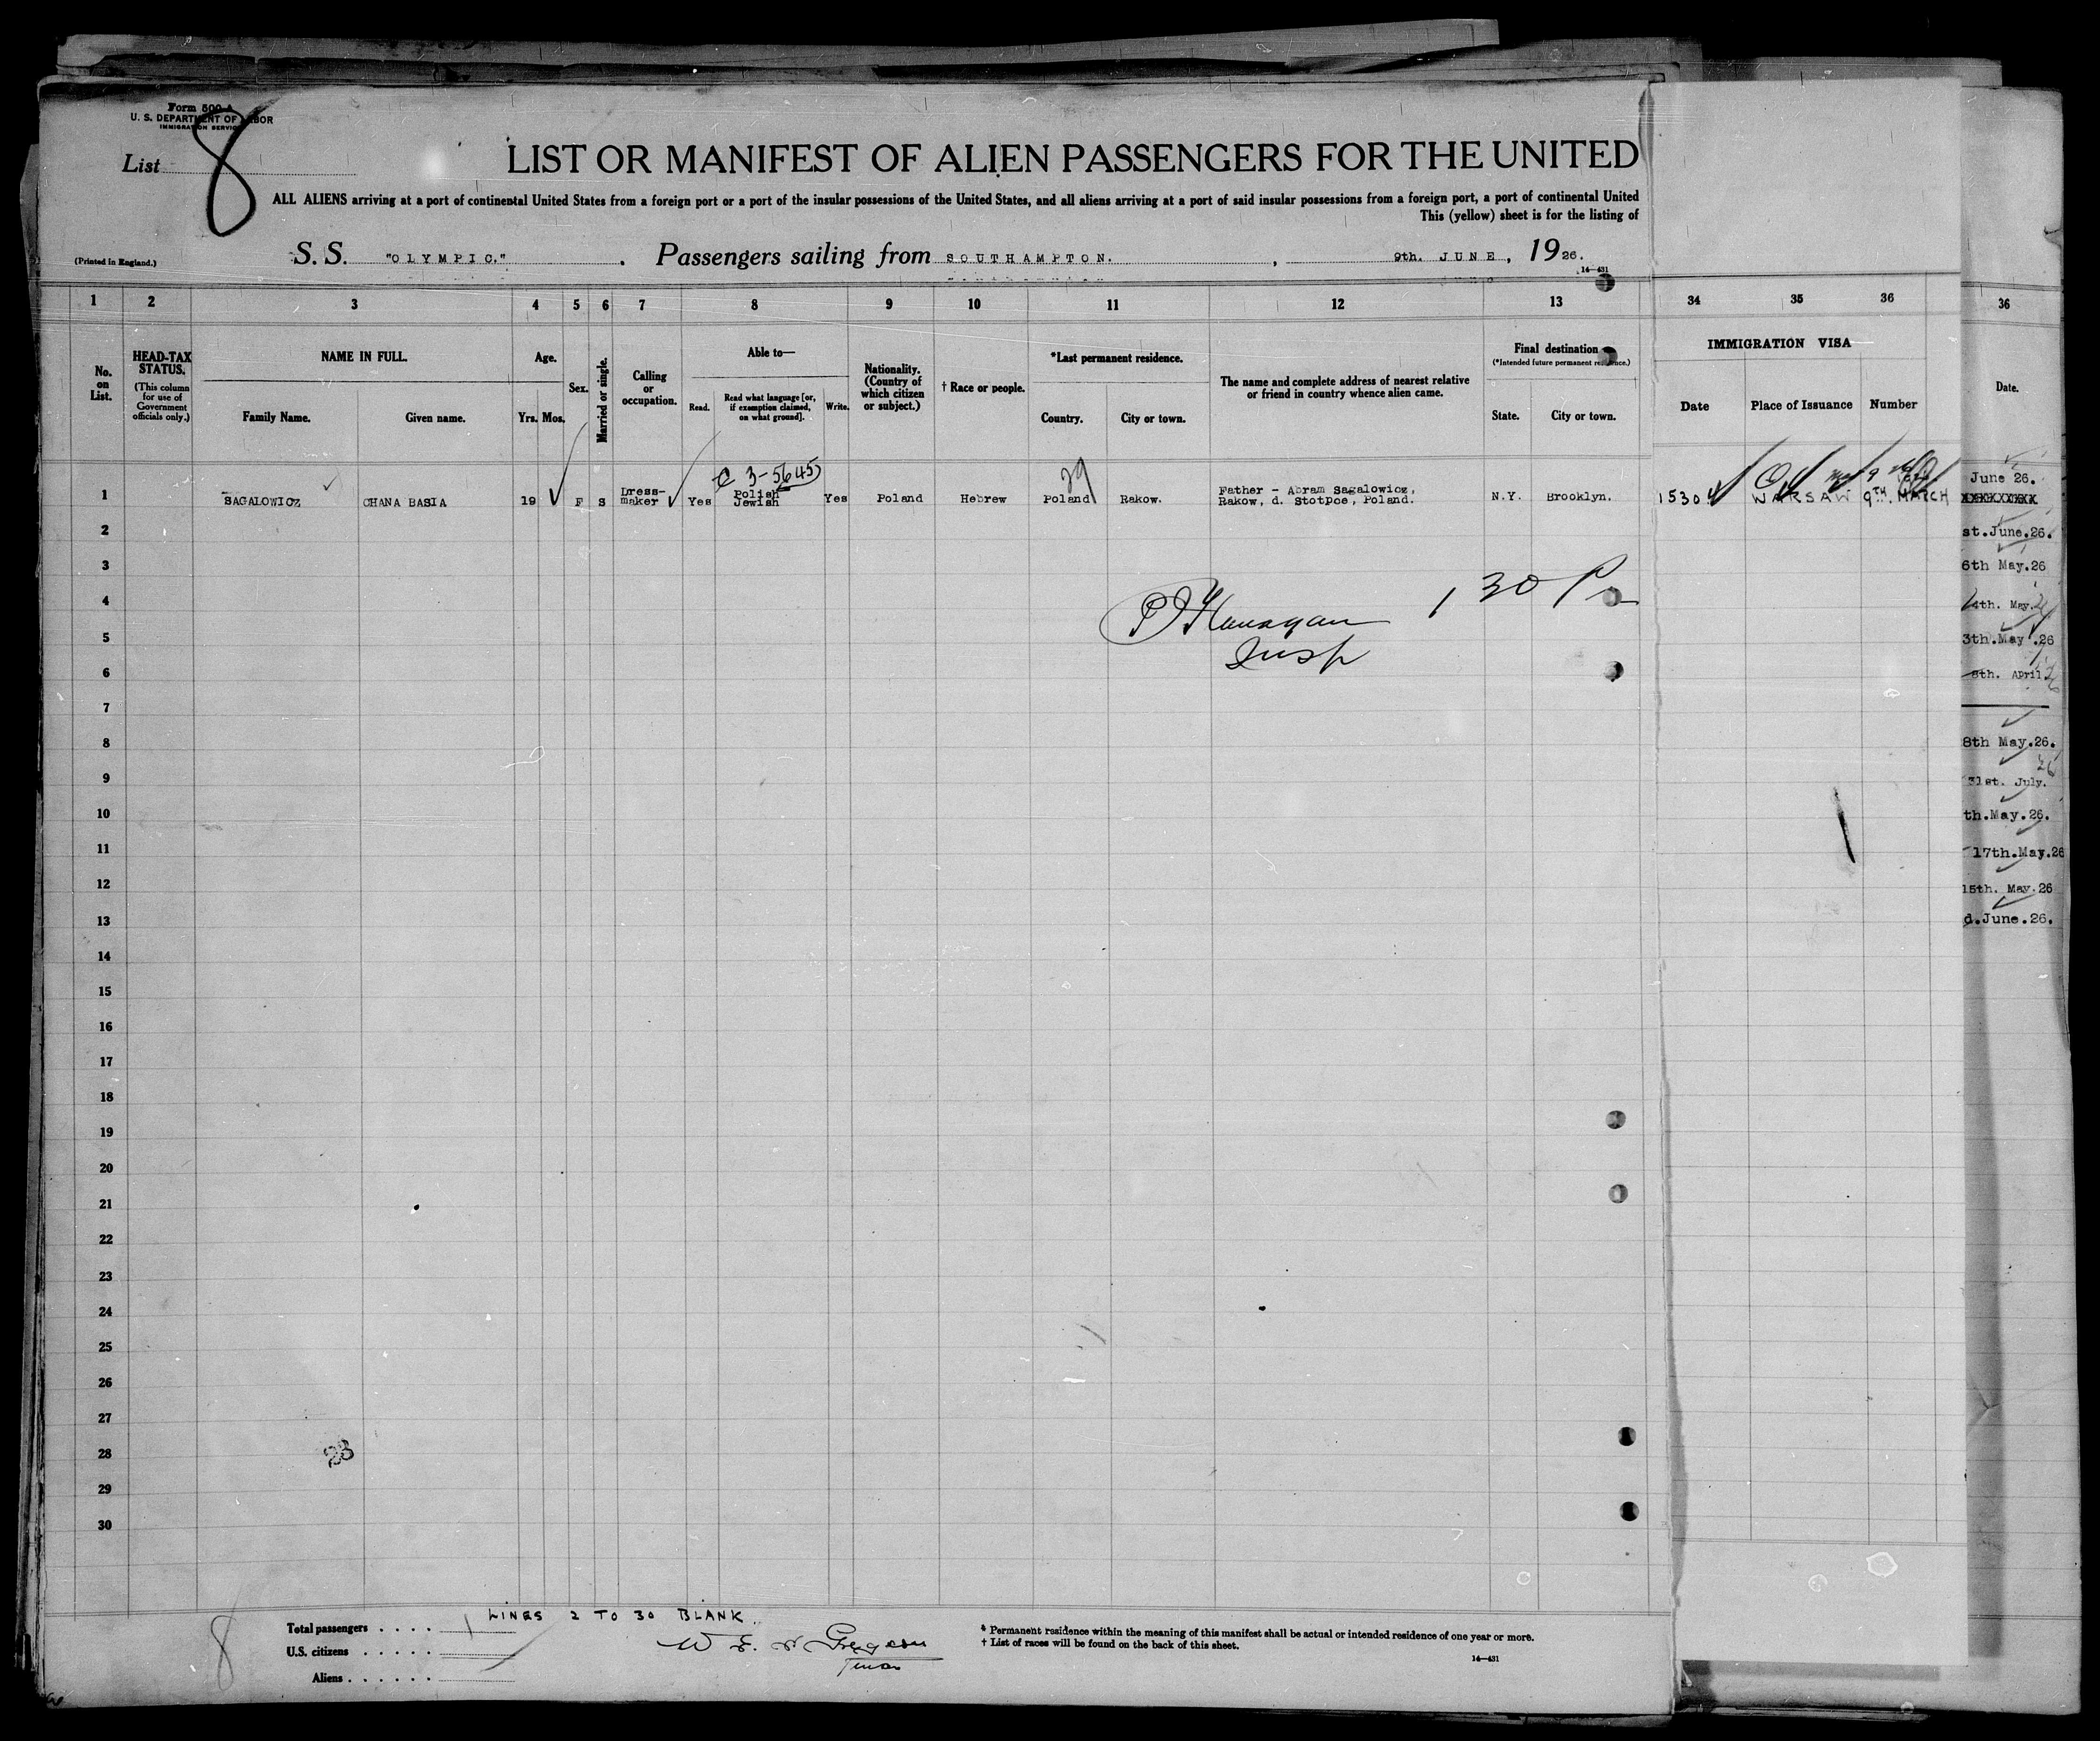 Form 500-A
U. S. DEPARTMENT OF LABOR
IMMIGRATION SERVICE
List 8
LIST OR MANIFEST OF ALIEN PASSENGERS FOR THE UNITED
ALL ALIENS arriving at a port of continental United States from a foreign port or a port of the insular possessions of the United States, and all aliens arriving at a port of said insular possessions from a foreign port, a port of continental United
This (yellow) sheet is for the listing of
(Printed in England.)
S. S. "OLYMPIC." Passengers sailing from SOUTHAMPTON. , 9th. JUNE, 1926.
14—431
1 2 3 4 5 6 7 8 9 10 11 12 13 34 35 36 36
No. on List.
HEAD-TAX STATUS.
(This column for use of Government officials only.)
NAME IN FULL.
Family Name. Given name.
Age.
Yrs. Mos.
Sex.
Married or single.
Calling or occupation.
Able to—
Read. Read what language [or, if exemption claimed, on what ground]. Write.
Nationality. (Country of which citizen or subject.)
† Race or people.
*Last permanent residence.
Country. City or town.
The name and complete address of nearest relative or friend in country whence alien came.
Final destination
(*Intended future permanent residence.)
State. City or town.
IMMIGRATION VISA
Date Place of Issuance Number
Date.
C 3-5645
29
1 SAGALOWICZ CHANA BASIA 19 F S Dress-maker Yes Polish Jewish Yes Poland Hebrew Poland Rakow. Father - Abram Sagalowicz, Rakow, d. Stotpce, Poland. N.Y. Brooklyn. 1530 WARSAW 9TH. MARCH
June 26.
2 st.June.26.
3 6th May.26
4 4th. May.
5 3th.May.26
6 8th. April
7
8 8th May.26.
9 31st. July.
10 th.May.26.
11 17th.May.26
12 15th. May.26
13 d.June.26.
1 30 P
Flanagan
Insp
14
15
16
17
18
19
20
21
22
23
24
25
26
27
28
29
30
LINES 2 TO 30 BLANK.
8
Total passengers . . . . 1
U.S. citizens . . . . .
Aliens . . . . . .
* Permanent residence within the meaning of this manifest shall be actual or intended residence of one year or more.
† List of races will be found on the back of this sheet.
14—431